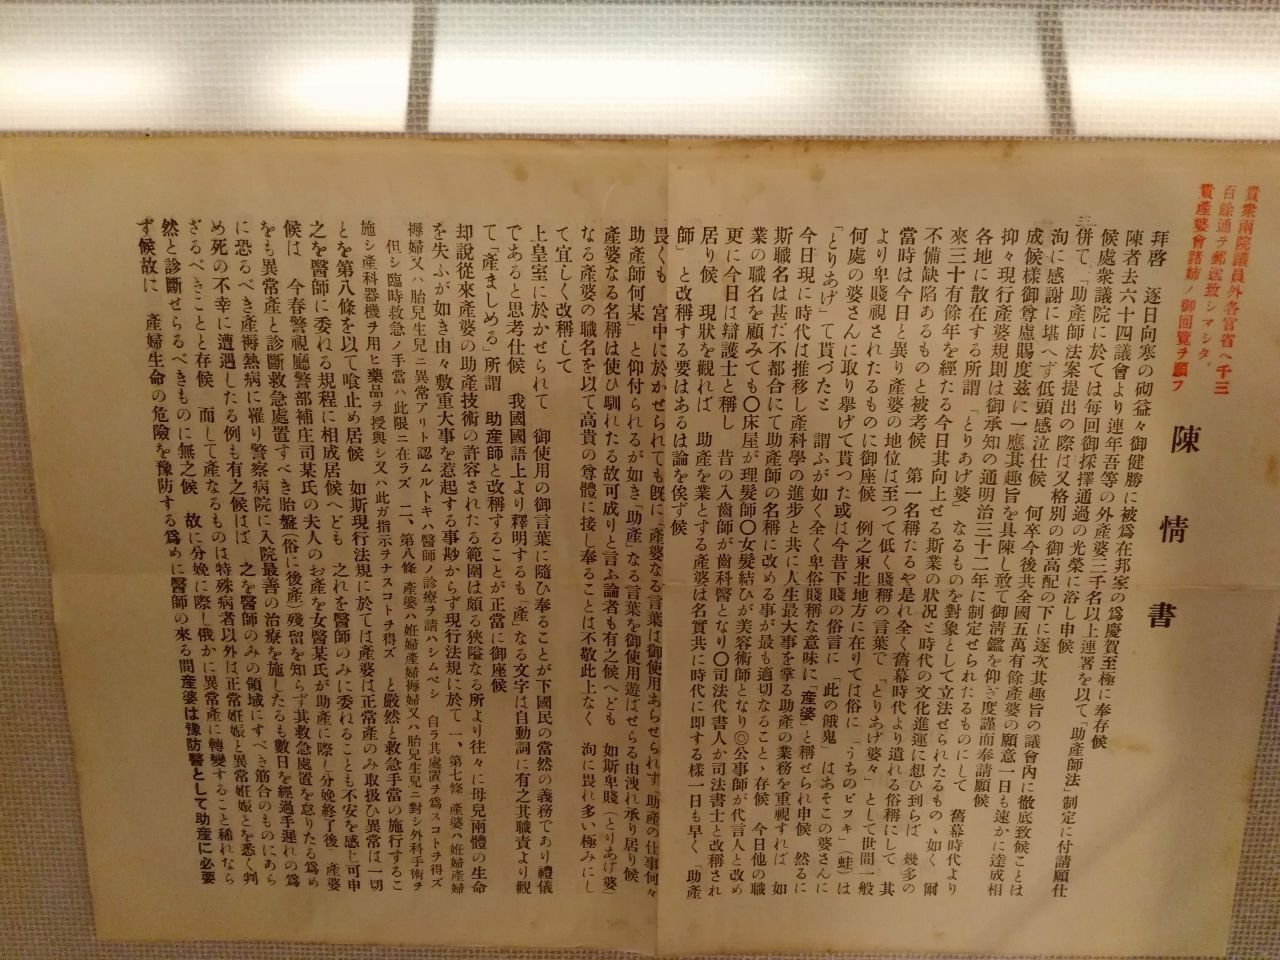 貴衆兩院議員外各官省ヘ千三
百餘通ヲ郵送致シマシタ。
貴産婆會諸姉ノ御回覽ヲ願フ
陳情書
拜啓 逐日向寒の砌益々御健勝に被爲在邦家の爲慶賀至極に奉存候
陳者去六十四議會より連年吾等の外産婆三千名以上連署を以て「助産師法」制定に付請願仕
候處衆議院に於ては毎回御採擇通過の光榮に浴し申候
併て、「助産師法案提出の際は又格別の御高配の下に逐次其趣旨の議會内に徹底致候ことは
洵に感謝に堪へず低頭感泣仕候 何卒今後共全國五萬有餘産婆の願意一日も速かに達成相
成候樣御尊慮賜度玆に一應其趣旨を具陳し敢て御清鑑を仰ぎ度謹而奉請願候
抑々現行産婆規則は御承知の通明治三十二年に制定せられたるものにして 舊幕時代より
各地に散在する所謂「とりあげ婆」なるものを對象として立法せられたるもの、如く 爾
來三十有餘年を經たる今日其向上せる斯業の狀況と時代の文化進運に想ひ到らば 幾多の
不備缺陷あるものと被考候 第一名稱たるや是れ全く舊幕時代より遺れる俗稱にして 其
當時は今日と異り産婆の地位は至つて低く賤稱の言葉で「とりあげ婆々」として世間一般
より卑賤視されたるものに御座候 例之東北地方に在りては俗に「うちのビッキ」(蛙)は
何處の婆さんに取り擧げて貰つた或は今昔下賤の俗言に「此の餓鬼」はあそこの婆さんに
「とりあげ」て貰つたと 謂ふが如く全く卑俗賤稱な意味に「産婆」と稱せられ申候 然るに
今日現に時代は推移し産科學の進步と共に人生最大事を掌る助産の業務を重視すれば 如
斯職名は甚だ不都合にて助産師の名稱に改める事が最も適切なること、存候 今日他の職
業の職名を顧みても〇床屋が理髮師〇女髮結ひが美容術師となり◎公事師が代言人と改め
更に今日は辯護士と稱し 昔の入齒師が齒科醫となり〇司法代書人か司法書士と改稱され
居り候 現狀を觀れば 助産を業とする産婆は名實共に時代に即する樣一日も早く「助産
師」と改稱する要はあるは論を俟ず候
畏くも 宮中に於かせられても既に「産婆なる言葉は御使用あらせられず「助産の仕事何々
助産師何某」と仰付られるが如き「助産」なる言葉を御使用遊ばせらる由洩れ承り居り候
産婆なる名稱は使ひ馴れたる故可成りと言ふ論者も有之候へども 如斯卑賤(とりあげ婆)
なる産婆の職名を以て高貴の尊體に接し奉ることは不敬此上なく 洵に畏れ多い極みにし
て宜しく改稱して
上皇室に於かせられて 御使用の御言葉に隨ひ奉ることが下國民の當然の義務であり禮儀
であると思考仕候 我國國語上より釋明するも「産」なる文字は自動詞に有之其職責より觀
て「産ましめる」所謂 助産師と改稱することが正當に御座候
却說從來産婆の助産技術の許容されたる範圍は頗る狹隘なる所より往々に母兒兩體の生命
を失ふが如き由々敷重大事を惹起する事尠からず現行法規に於て 一、第七條 産婆ハ姙婦産婦
褥婦又ハ胎兒生兒ニ異常アリト認ムルトキハ醫師ノ診療ヲ請ハシムベシ 自ラ其處置ヲ爲スコトヲ得ズ
但シ臨時救急ノ手當ハ此限ニ在ラズ 二、第八條 産婆ハ姙婦産婦褥婦又ハ胎兒生兒ニ對シ外科手術ヲ
施シ産科器機ヲ用ヒ藥品ヲ授與シ又ハ此ガ指示ヲナスコトヲ得ズ と嚴然と救急手當の施行するこ
とを第八條を以て喰止め居候 如斯現行法規に於ては産婆は正常産のみ取扱ひ異常は一切
之を醫師に委れる規程に相成居候へども 之れを醫師のみに委ねることも不安を感じ可申
候は 今春警視廳警部補庄司某氏の夫人のお産を女醫某氏が助産に際し分娩終了後 産婆
をも異常産と診斷救急處置すべき胎盤(俗に後産)殘留を知らず其救急處置を怠りたる爲め
に恐るべき産褥熱病に罹り警察病院に入院最善の治療を施したるも數日を經過手遲れの爲
め死の不幸に遭遇したる例も有之候はば 之を醫師のみの領域にすべき筋合のものにあら
ざるべきことと存候 而して産なるものは特殊病者以外は正常姙娠と異常姙娠とを悉く判
然と診斷せらるべきものに無之候 故に分娩に際し俄かに異常産に轉變すること稀れなら
ず候故に 産婦生命の危險を豫防する爲めに醫師の來る間産婆は豫防醫として助産に必要